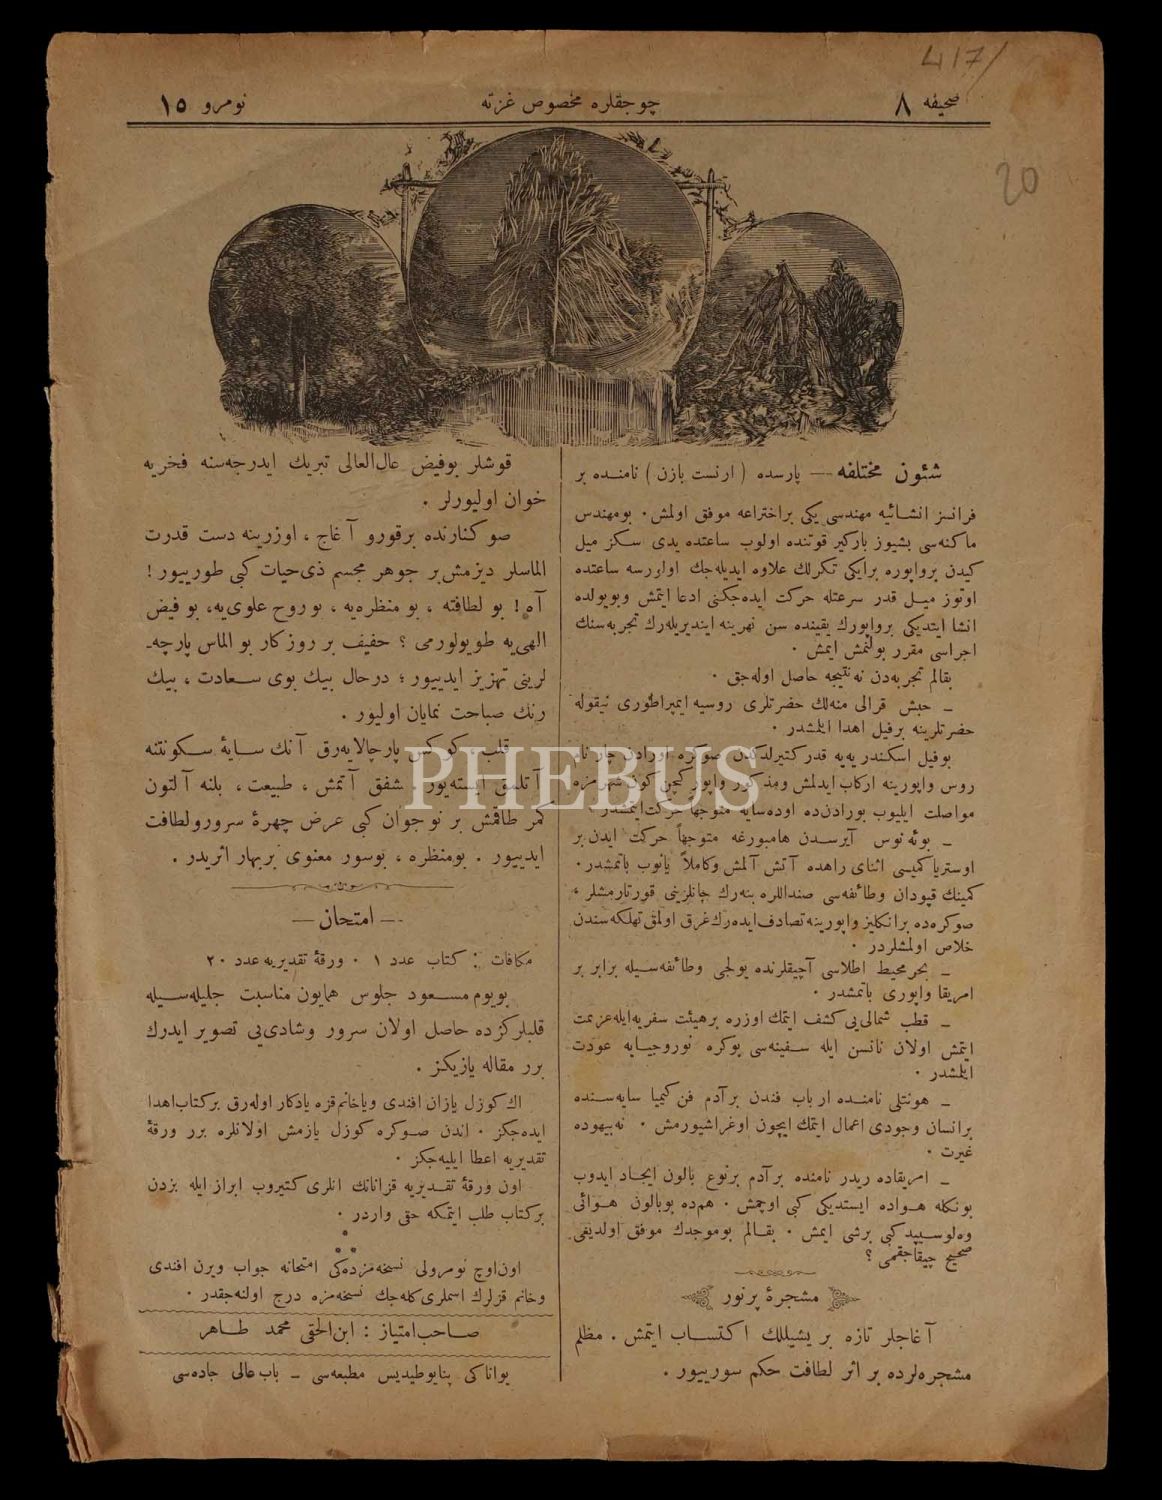 417/
صحیفه ٨
چوجقلره مخصوص غزته
نومرو ١٥
20
شئون مختلفه — پارسده ( ارنست بازن ) نامنده بر
فرانسز انشائیه مهندسی یکی براختراعه موفق اولمش . بومهندس
ماکنه‌سی بشیوز بارکیر قوتنده اولوب ساعتده یدی سکز میل
کیدن برواپوره برایکی تکرلك علاوه ایدیله‌جك اولورسه ساعتده
اوتوز میل قدر سرعتله حرکت ایده‌جکنی ادعا ایتمش وبویولده
انشا ایتدیکی برواپورك یقینده سن نهرینه ایندیریله‌رك تجربه‌سنك
اجراسی مقرر بولنمش ایمش .
بقالم تجربه‌دن نه نتیجه حاصل اوله‌جق .
ـ حبش قرالی منه‌لك حضرتلری روسیه ایمپراطوری نیقوله
حضرتلرینه برفیل اهدا ایلمشدر .
بوفیل اسکندریه‌یه قدر کتیرلدکدن صوکره اورادن چارنام
روس واپورینه ارکاب ایدلمش ومذکور واپور کچن کون شهرمزه
مواصلت ایلیوب بورادن‌ده اوده‌سایه متوجهاً حرکت ایتمشدر .
ـ بوئه‌نوس آیرسدن هامبورغه متوجهاً حرکت ایدن بر
اوستریا کمیسی اثنای راهده آتش آلمش وکاملاً یانوب باتمشدر .
کمینك قپودان وطائفه‌سی صنداللره بنه‌رك جانلرینی قورتارمشلر ،
صوکره‌ده برانکلیز واپورینه تصادف ایده‌رك غرق اولمق تهلکه‌سندن
خلاص اولمشلردر .
ـ بحر محیط اطلاسی آچیقلرنده یولجی وطائفه‌سیله برابر بر
امریقا واپوری باتمشدر .
ـ قطب شمالی‌یی کشف ایتمك اوزره برهیئت سفریه‌ایله‌عزیمت
ایتمش اولان نانسن ایله سفینه‌سی بوکره نوروجیایه عودت
ایلمشدر .
ـ هونتلی نامنده ارباب فندن برآدم فن کیمیا سایه‌سنده
برانسان وجودی اعمال ایتمك ایچون اوغراشیورمش . نه‌بیهوده
غیرت .
ـ امریقاده ریدر نامنده برآدم برنوع بالون ایجاد ایدوب
بونکله هواده ایستدیکی کبی اوچمش . هم‌ده بوبالون هوائی
وه‌لوسیپد کبی برشی ایمش . بقالم بوموجدك موفق اولدیغی
صحیح چیقاجقمی ؟
مشجرۀ پرنور
آغاجلر تازه بر یشیللك اکتساب ایتمش . مظلم
مشجره‌لرده بر اثر لطافت حکم سورییور .
قوشلر بوفیض عال‌العالی تبریك ایدرجه‌سنه فخریه
خوان اولیورلر .
صو کنارنده برقورو آغاج ، اوزرینه دست قدرت
الماسلر دیزمش بر جوهر مجسم ذی‌حیات کبی طورییور !
آه ! بو لطافته ، بو منظره‌یه ، بو روح علوی‌یه ، بو فیض
الهی‌یه طویولورمی ؟ خفیف بر روزکار بو الماس پارچه‌ـ
لرینی تهزیز ایدییور ؛ درحال بیك بوی سعادت ، بیك
رنك صباحت نمایان اولیور .
قلب کوکس پارچالایه‌رق آنك سایۀ سکونتنه
آتلمق ایسته‌یور . شفق آتمش ، طبیعت ، بلنه آلتون
کمر طاقمش بر نوجوان کبی عرض چهرۀ سرور ولطافت
ایدییور . بومنظره ، بوسور معنوی بربهار اثریدر .
— امتحان —
مکافات : کتاب عدد ١ . ورقۀ تقدیریه عدد ٢٠
بویوم مسعود جلوس همایون مناسبت جلیله‌سیله
قلبلرکزده حاصل اولان سرور وشادی‌یی تصویر ایدرك
برر مقاله یازیکز .
اك کوزل یازان افندی ویاخانم‌قزه یادکار اوله‌رق برکتاب‌اهدا
ایده‌جکز . اندن صوکره کوزل یازمش اولانلره برر ورقۀ
تقدیریه اعطا ایلیه‌جکز .
اون ورقۀ تقدیریه قزانانك انلری کتیروب ابراز ایله بزدن
برکتاب طلب ایتمکه حقی واردر .
اون‌اوچ نومرولی نسخه‌مزده‌کی امتحانه جواب ویرن افندی
وخانم قزلرك اسملری کله‌جك نسخه‌مزه درج اولنه‌جقدر .
صاحب‌امتیاز : ابن‌الحقی محمد طاهر
یواناکی پنایوطیدیس مطبعه‌سی ـ باب عالی جاده‌سی
PHEBUS